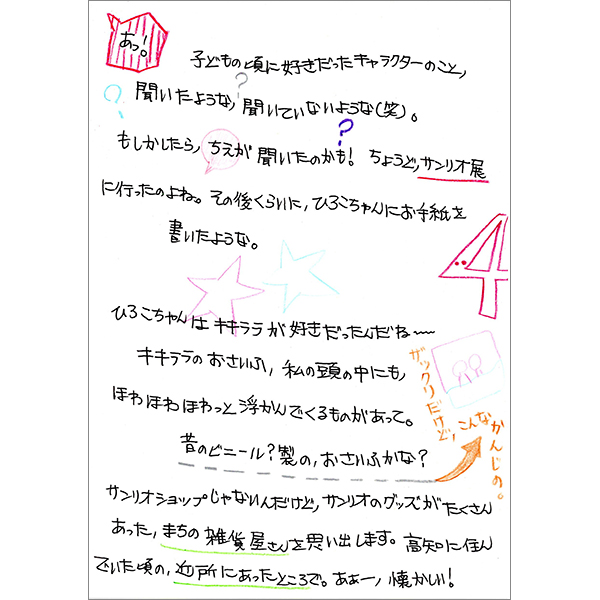 あっ!。
子どもの頃に好きだったキャラクターのこと,
聞いたような,聞いていないような(笑)。
もしかしたら,ちえが聞いたのかも! ちょうど,サンリオ展
に行ったのよね。その後くらいに,ひろこちゃんにお手紙を
書いたような。
4
ひろこちゃんはキキララが好きだったんだね〜〜
キキララのおさいふ,私の頭の中にも,
ほわほわほわっと浮かんでくるものがあって。
ザックリだけど,こんな
かんじの。
昔のビニール?製の,おさいふかな?
サンリオショップじゃないんだけど,サンリオのグッズがたくさん
あった,まちの雑貨屋さんを思い出します。高知に住ん
でいた頃の,近所にあったところで。あぁー,懐かしい!